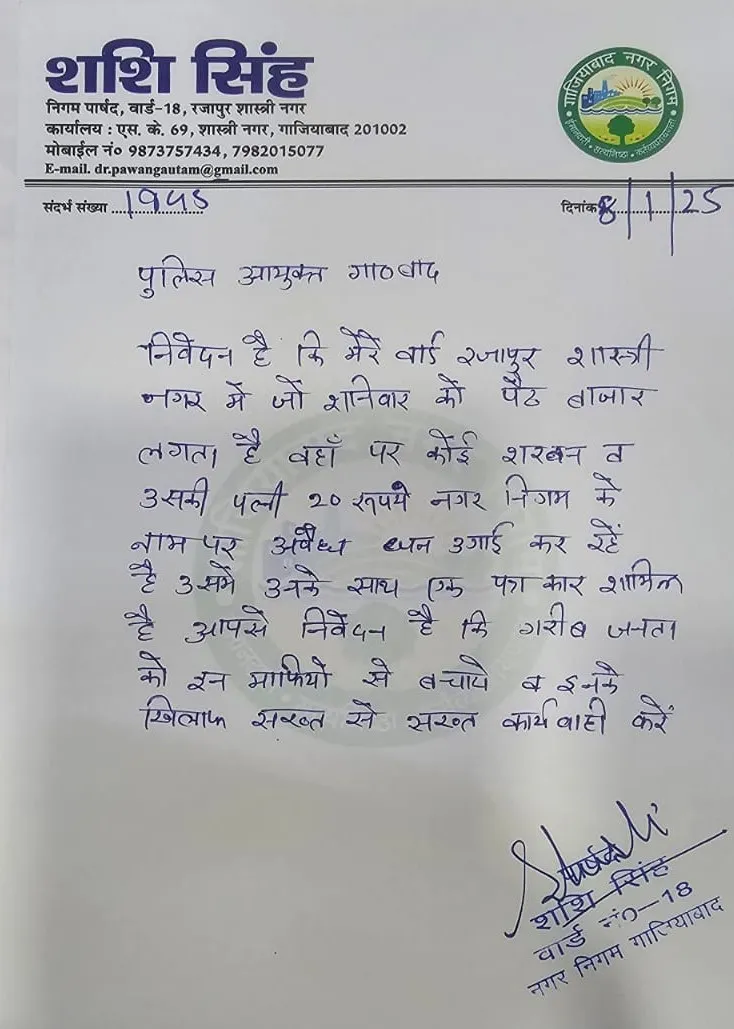 शशि सिंह
निगम पार्षद, वार्ड-18, रजापुर शास्त्री नगर
कार्यालय : एस. के. 69, शास्त्री नगर, गाजियाबाद 201002
मोबाईल नं० 9873757434, 7982015077
E-mail. dr.pawangautam@gmail.com
गाजियाबाद नगर निगम
ईमानदारी • सत्यनिष्ठा • कर्तव्यपरायणता
संदर्भ संख्या .... 1945
दिनांक 8/1/25
पुलिस आयुक्त गा०बाद
निवेदन है कि मेरे वार्ड रजापुर शास्त्री
नगर में जो शनिवार को पैठ बाजार
लगता है वहाँ पर कोई शरबन व
उसकी पत्नी 20 रूपये नगर निगम के
नाम पर अवैध धन उगाई कर रहें
है उसमें उनके साथ एक पत्रकार शामिल
है आपसे निवेदन है कि गरीब जनता
को इन माफियो से बचाये व इनके
खिलाफ सख्त से सख्त कार्यवाही करें
शशि सिंह
वार्ड नं०-18
नगर निगम गाजियाबाद